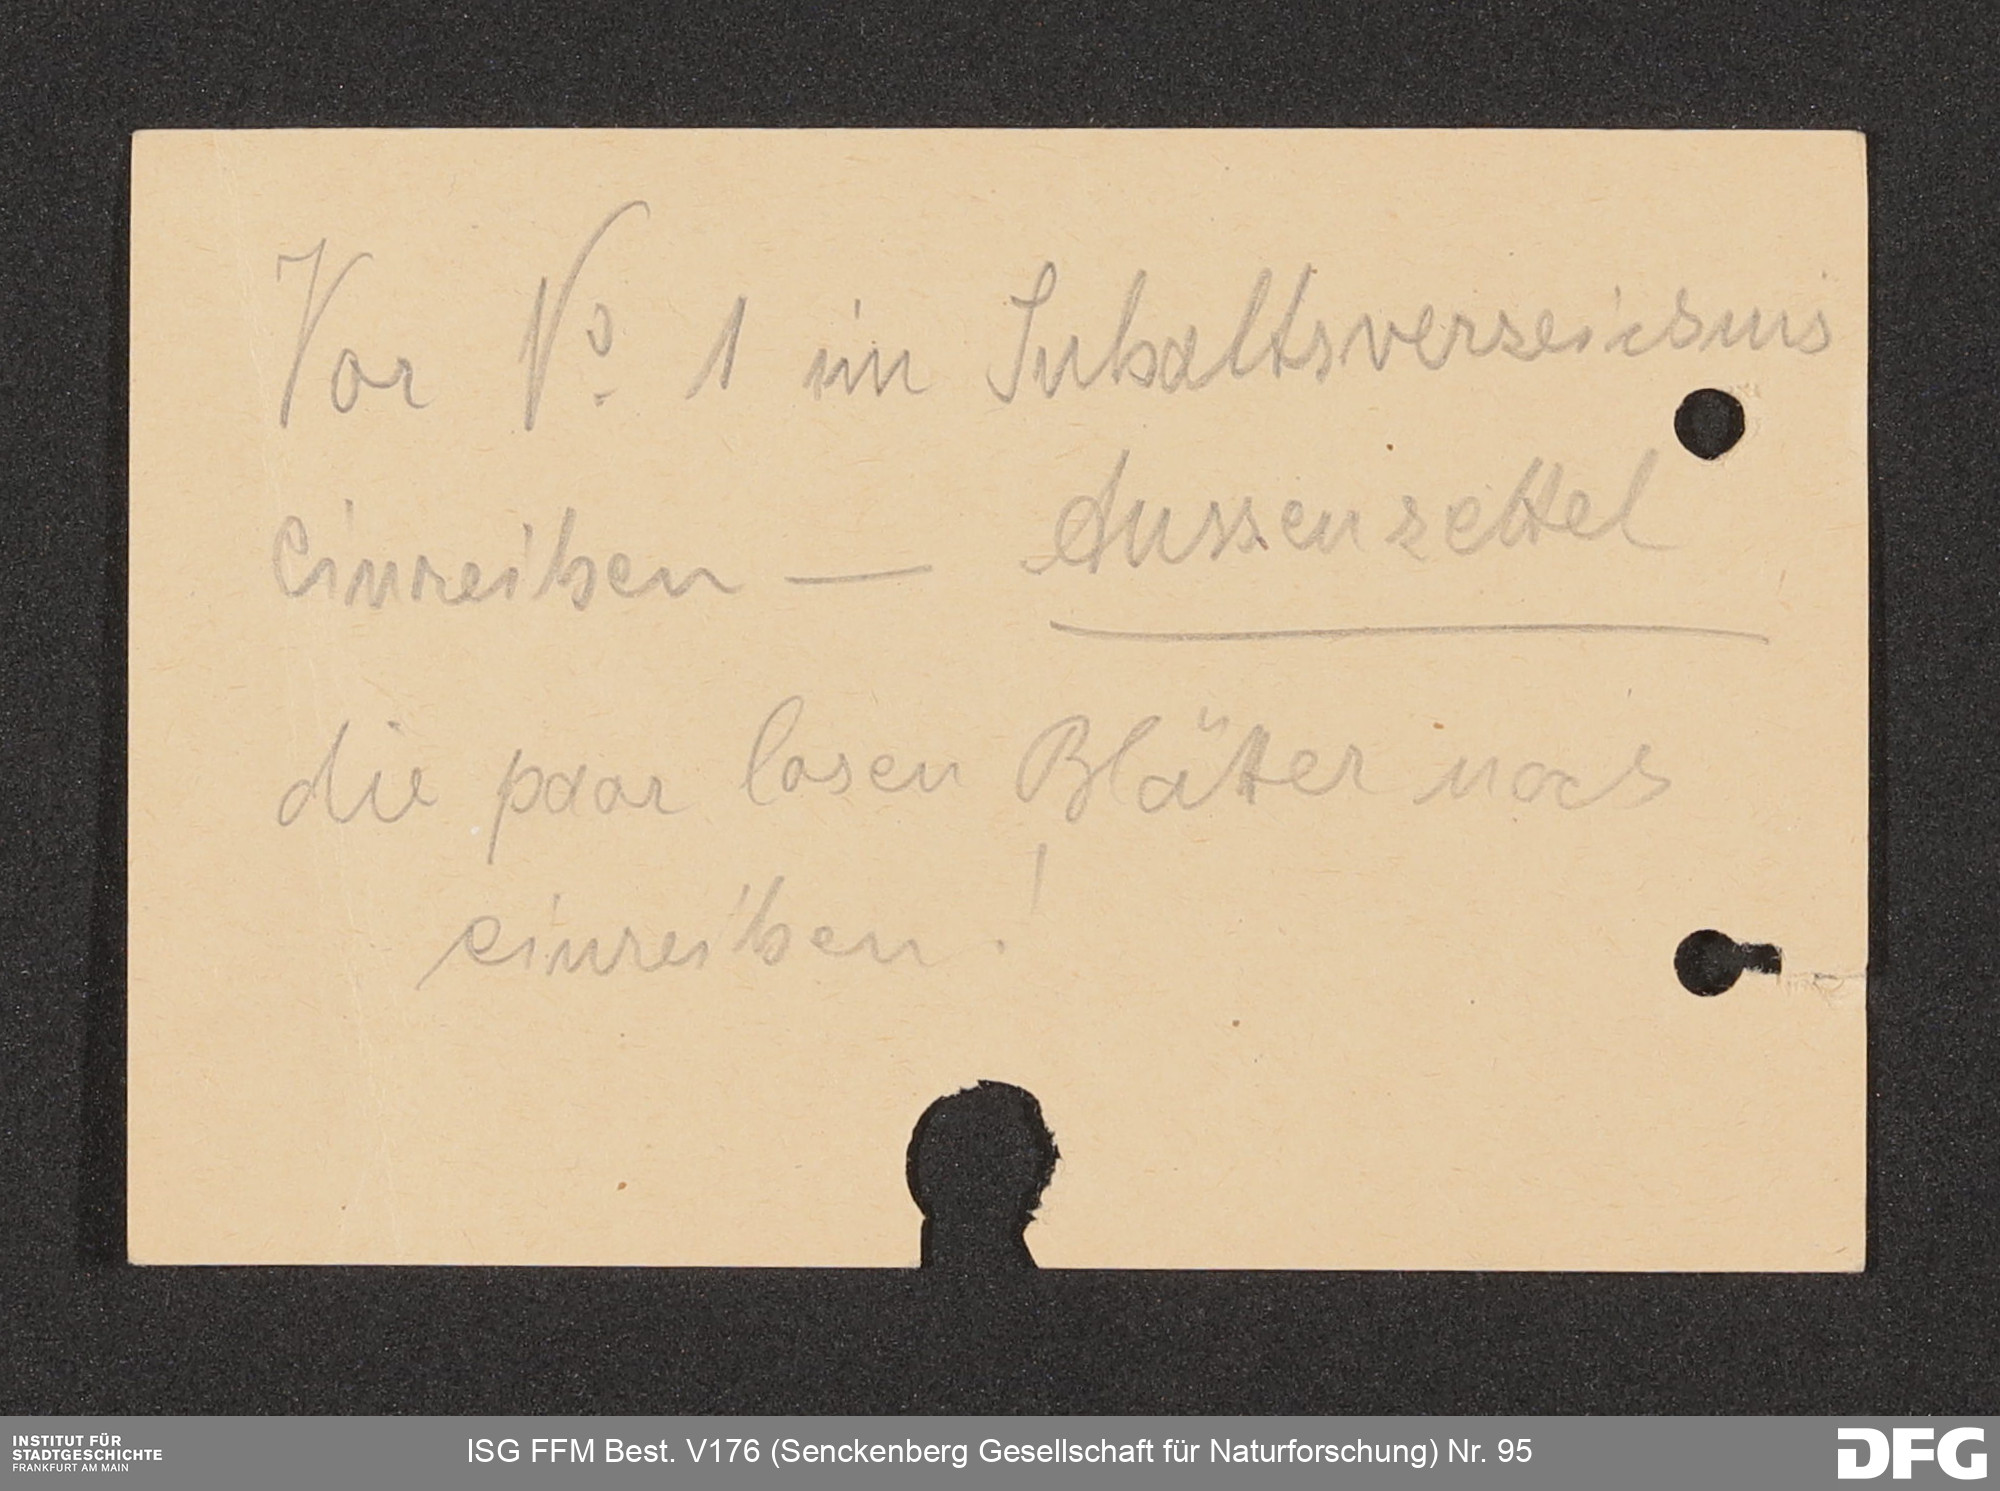 Vor No. 1 im Inhaltsverzeichnis
Einreihen — Aussenzettel
die paar losen Blätter noch
einreihen!
INSTITUT FÜR
STADTGESCHICHTE
FRANKFURT AM MAIN
ISG FFM Best. V176 (Senckenberg Gesellschaft für Naturforschung) Nr. 95
DFG